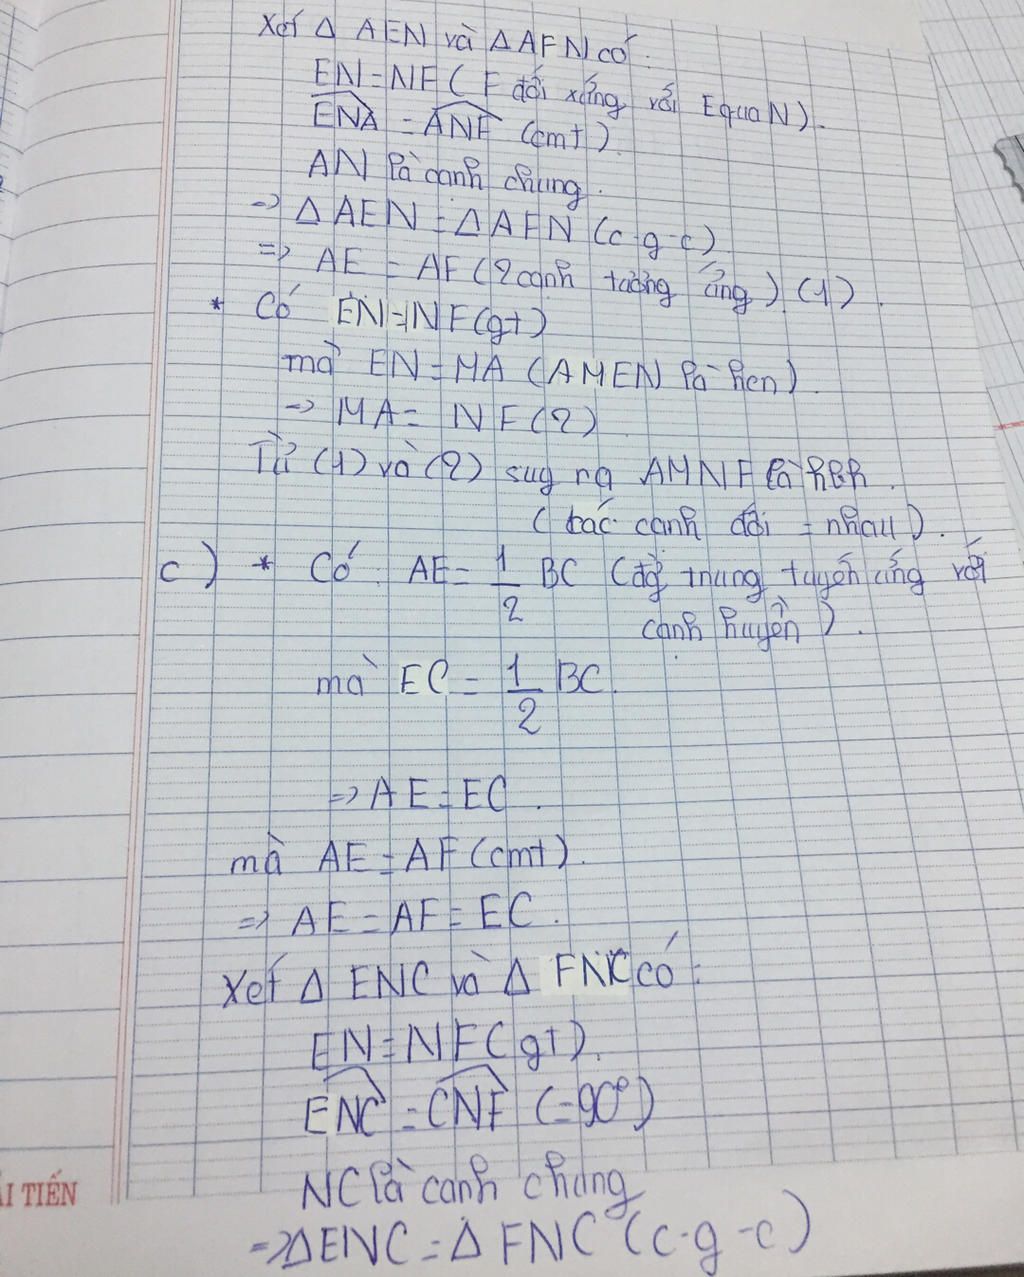 Xét Δ AEN và Δ AFN có:
EN=NF ( F đối xứng với E qua N).
ENA = ANF (cmt)
AN là cạnh chung.
=> Δ AEN = Δ AFN (c-g-c)
=> AE = AF (2 cạnh tương ứng) (1).
* Có EN=NF(gt)
mà EN=MA (AMEN là hcn).
=> MA= NF(2)
Từ (1) và (2) suy ra AMNF là hbh.
( các cạnh đối = nhau).
c) * Có AE= 1/2 BC (đg trung tuyến ứng với
cạnh huyền).
mà EC = 1/2 BC.
=> AE=EC.
mà AE=AF(cmt).
=> AE=AF=EC.
Xét Δ ENC và Δ FNC có:
EN=NF(gt).
ENC = CNF (=90°)
NC là cạnh chung
ẢI TIẾN
=>ΔENC=Δ FNC (c-g-c)